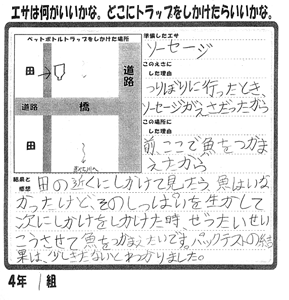 エサは何がいいかな。どこにトラップをしかけたらいいかな。
ペットボトルトラップをしかけた場所
田
道路
道路
橋
田
準備したエサ
ソーセージ
このえさに
した理由
つりぼりに行ったとき、
ソーセージがえさだったから
この場所に
した理由
前、ここで魚をつかま
えたから
結果と
感想
田の近くにしかけて見たら、魚はいな
かったけど、そのしっぱいを生かして
次にしかけをしかけた時、ぜったいせい
こうさせて魚をつかまえたいです。パックテストの結
果は、少しきたないとわかりました。
4年 1組